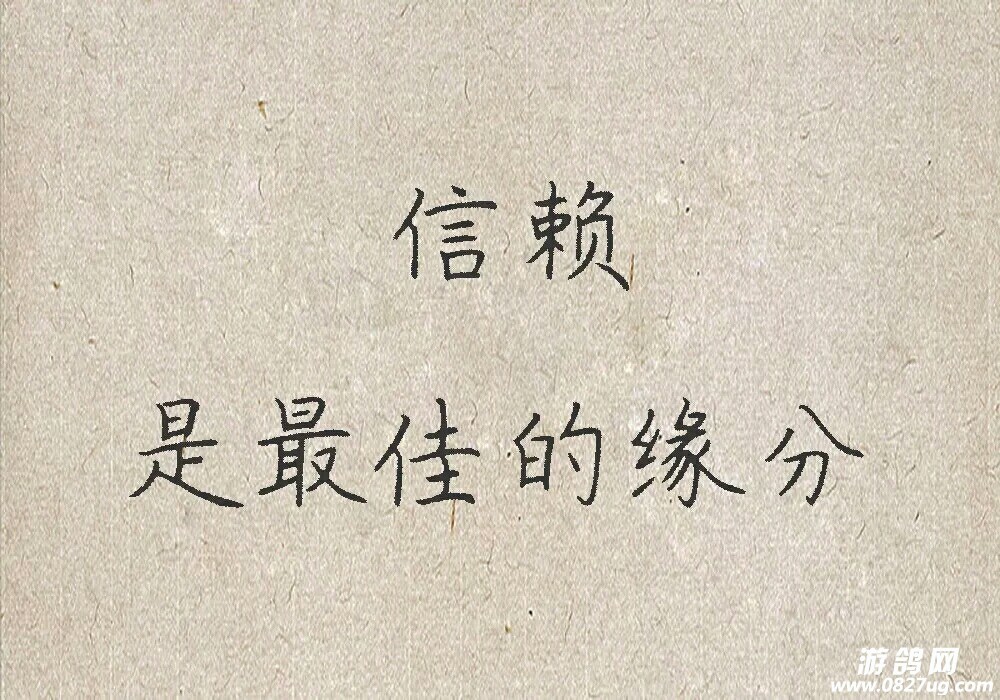 信赖
是最佳的缘分
游鸽网
www.0827ug.com